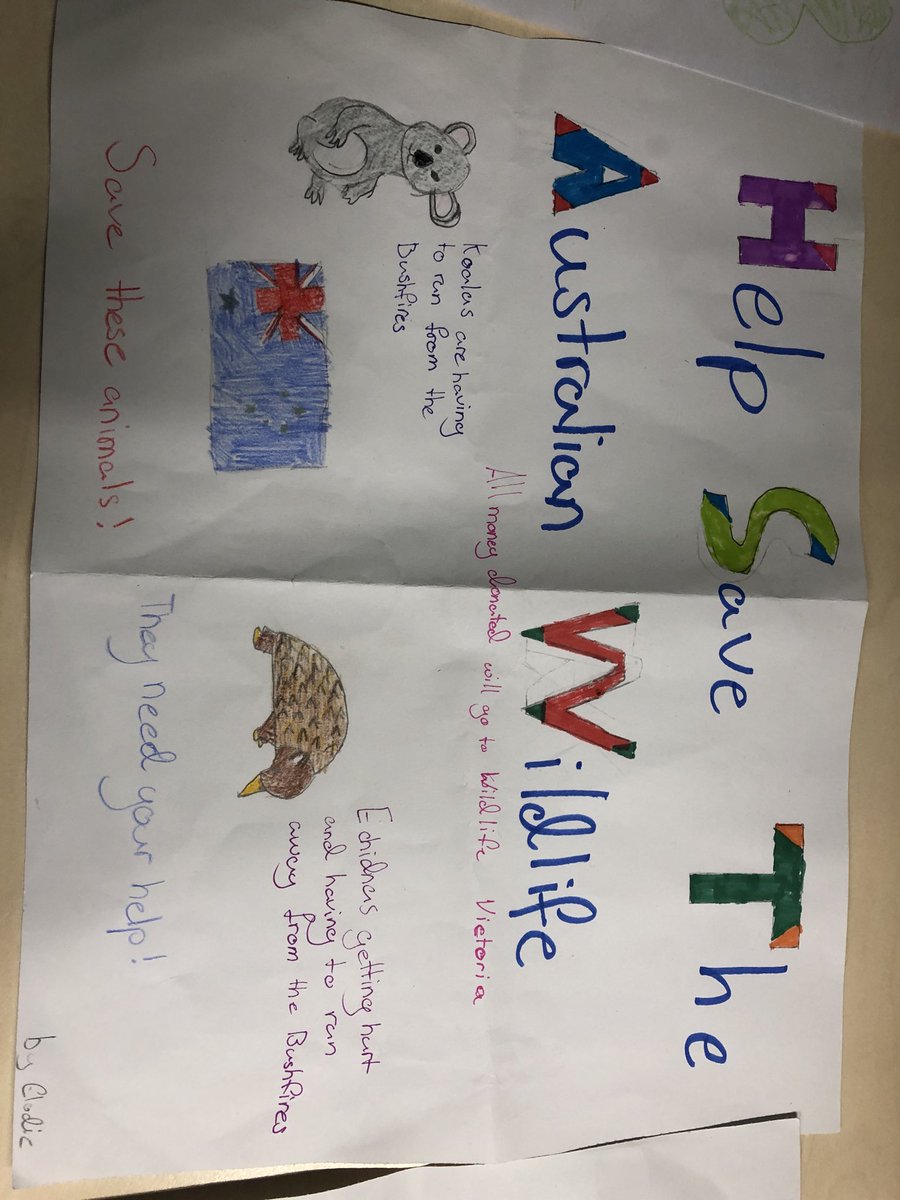 Help Save The
Australian Wildlife
All money donated will go to Wildlife Victoria
Koalas are having
to run from the
Bushfires
Echidnas getting hurt
and having to run
away from the Bushfires
Save these animals!
They need your help!
by Elodie